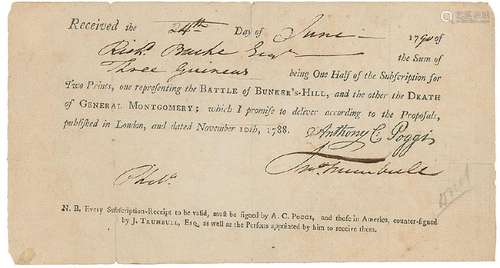 Received the 24th Day of June 1790 of
Richd. Bache Esqr. the Sum of
Three Guineas being One Half of the Subscription for
Two Prints, one representing the BATTLE OF BUNKER'S-HILL, and the other the DEATH
OF GENERAL MONTGOMERY; which I promise to deliver according to the Proposals,
published in London, and dated November 10th, 1788. Anthony C Poggi
Jno. Trumbull
Phila.
N. B. Every Subscription-Receipt to be valid, must be signed by A. C. POGGI, and those in America, counter-signed
by J. TRUMBULL, ESQ. as well as the Persons appointed by him to receive them.